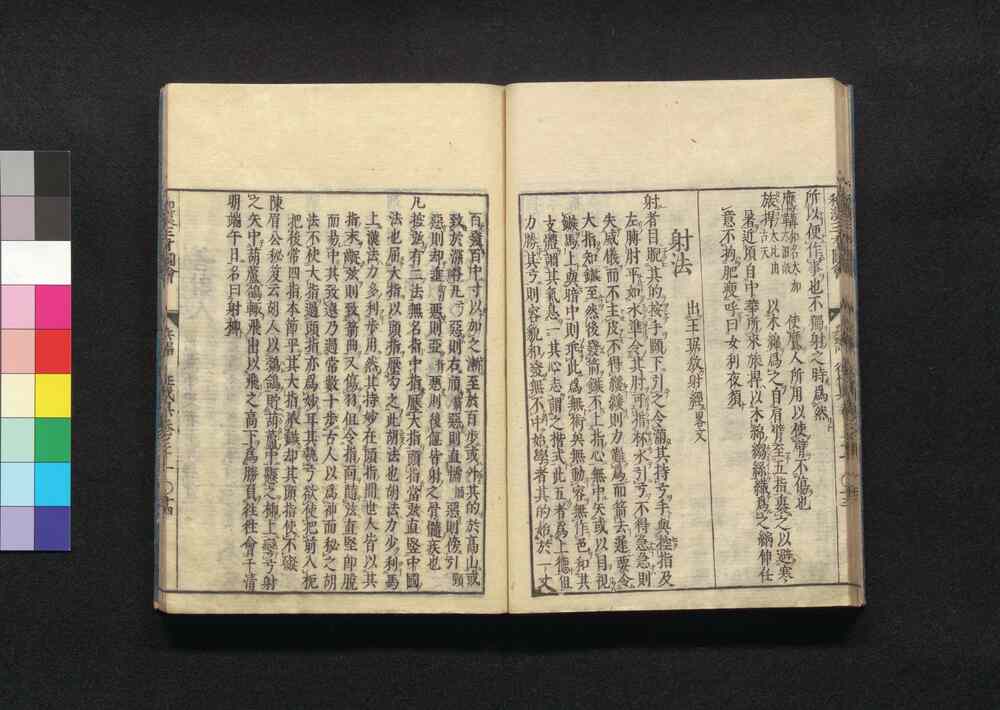 所以便作事也不獨射之時爲然
使臂人所用以使臂不傷也
以木綿爲之自肩臂至五指奥之以避寒
暑近頃自中華所來旅捍以木綿綿絲織爲之縮伸任
意不拘肥瘦呼曰女利夜須
射法
出王琚教射經畧文
射者目睨其的按手頤下引之令滿其持弓手與控指及
左膊肘平如水準令其肘可措杯水引弓不得急急則
失威儀而不主皮不得緩緩則力難爲而箭去遲要令
大指知鏃至然後發箭鏃不上指必無中矢或以目視
鏃馬上與暗中則乖此爲無術與無動容無作色和其
支體調其氣息一其心志謂之楷式此五者爲上德但
力勝其弓則容貌和發無不中始學者其的始於一丈
百發百中寸以加之漸至於百步或升其的於高山或
致於深谷凡弓惡則右頭惡則直惡則傍引頸
惡則却垂惡則亞惡則後傴皆射之骨髓疾也
凡控弦有二法無名指中指壓大指頭指當弦直竪中國
法也屈大指以頭指壓勾之此胡法也胡法力少利馬
上漢法力多利步用然其持妙在頭指間世人皆以其
指末齪弦則致箭曲又傷羽但令指面隨弦直竪即脫
而易中其致遠乃過常數十步古人以爲神而秘之胡
法不使大指過頭指亦爲妙耳其執弓欲使把前入扼
把後當四指本節平其大指承鏃却其頭指使不礙
陳眉公秘笈云胡人以鵓鴿貯葫蘆中懸之柳上彎弓射
之矢中葫蘆鴿輒飛出以飛之高下爲勝負往往會于清
明端午日名曰射柳
和漢三才圖會